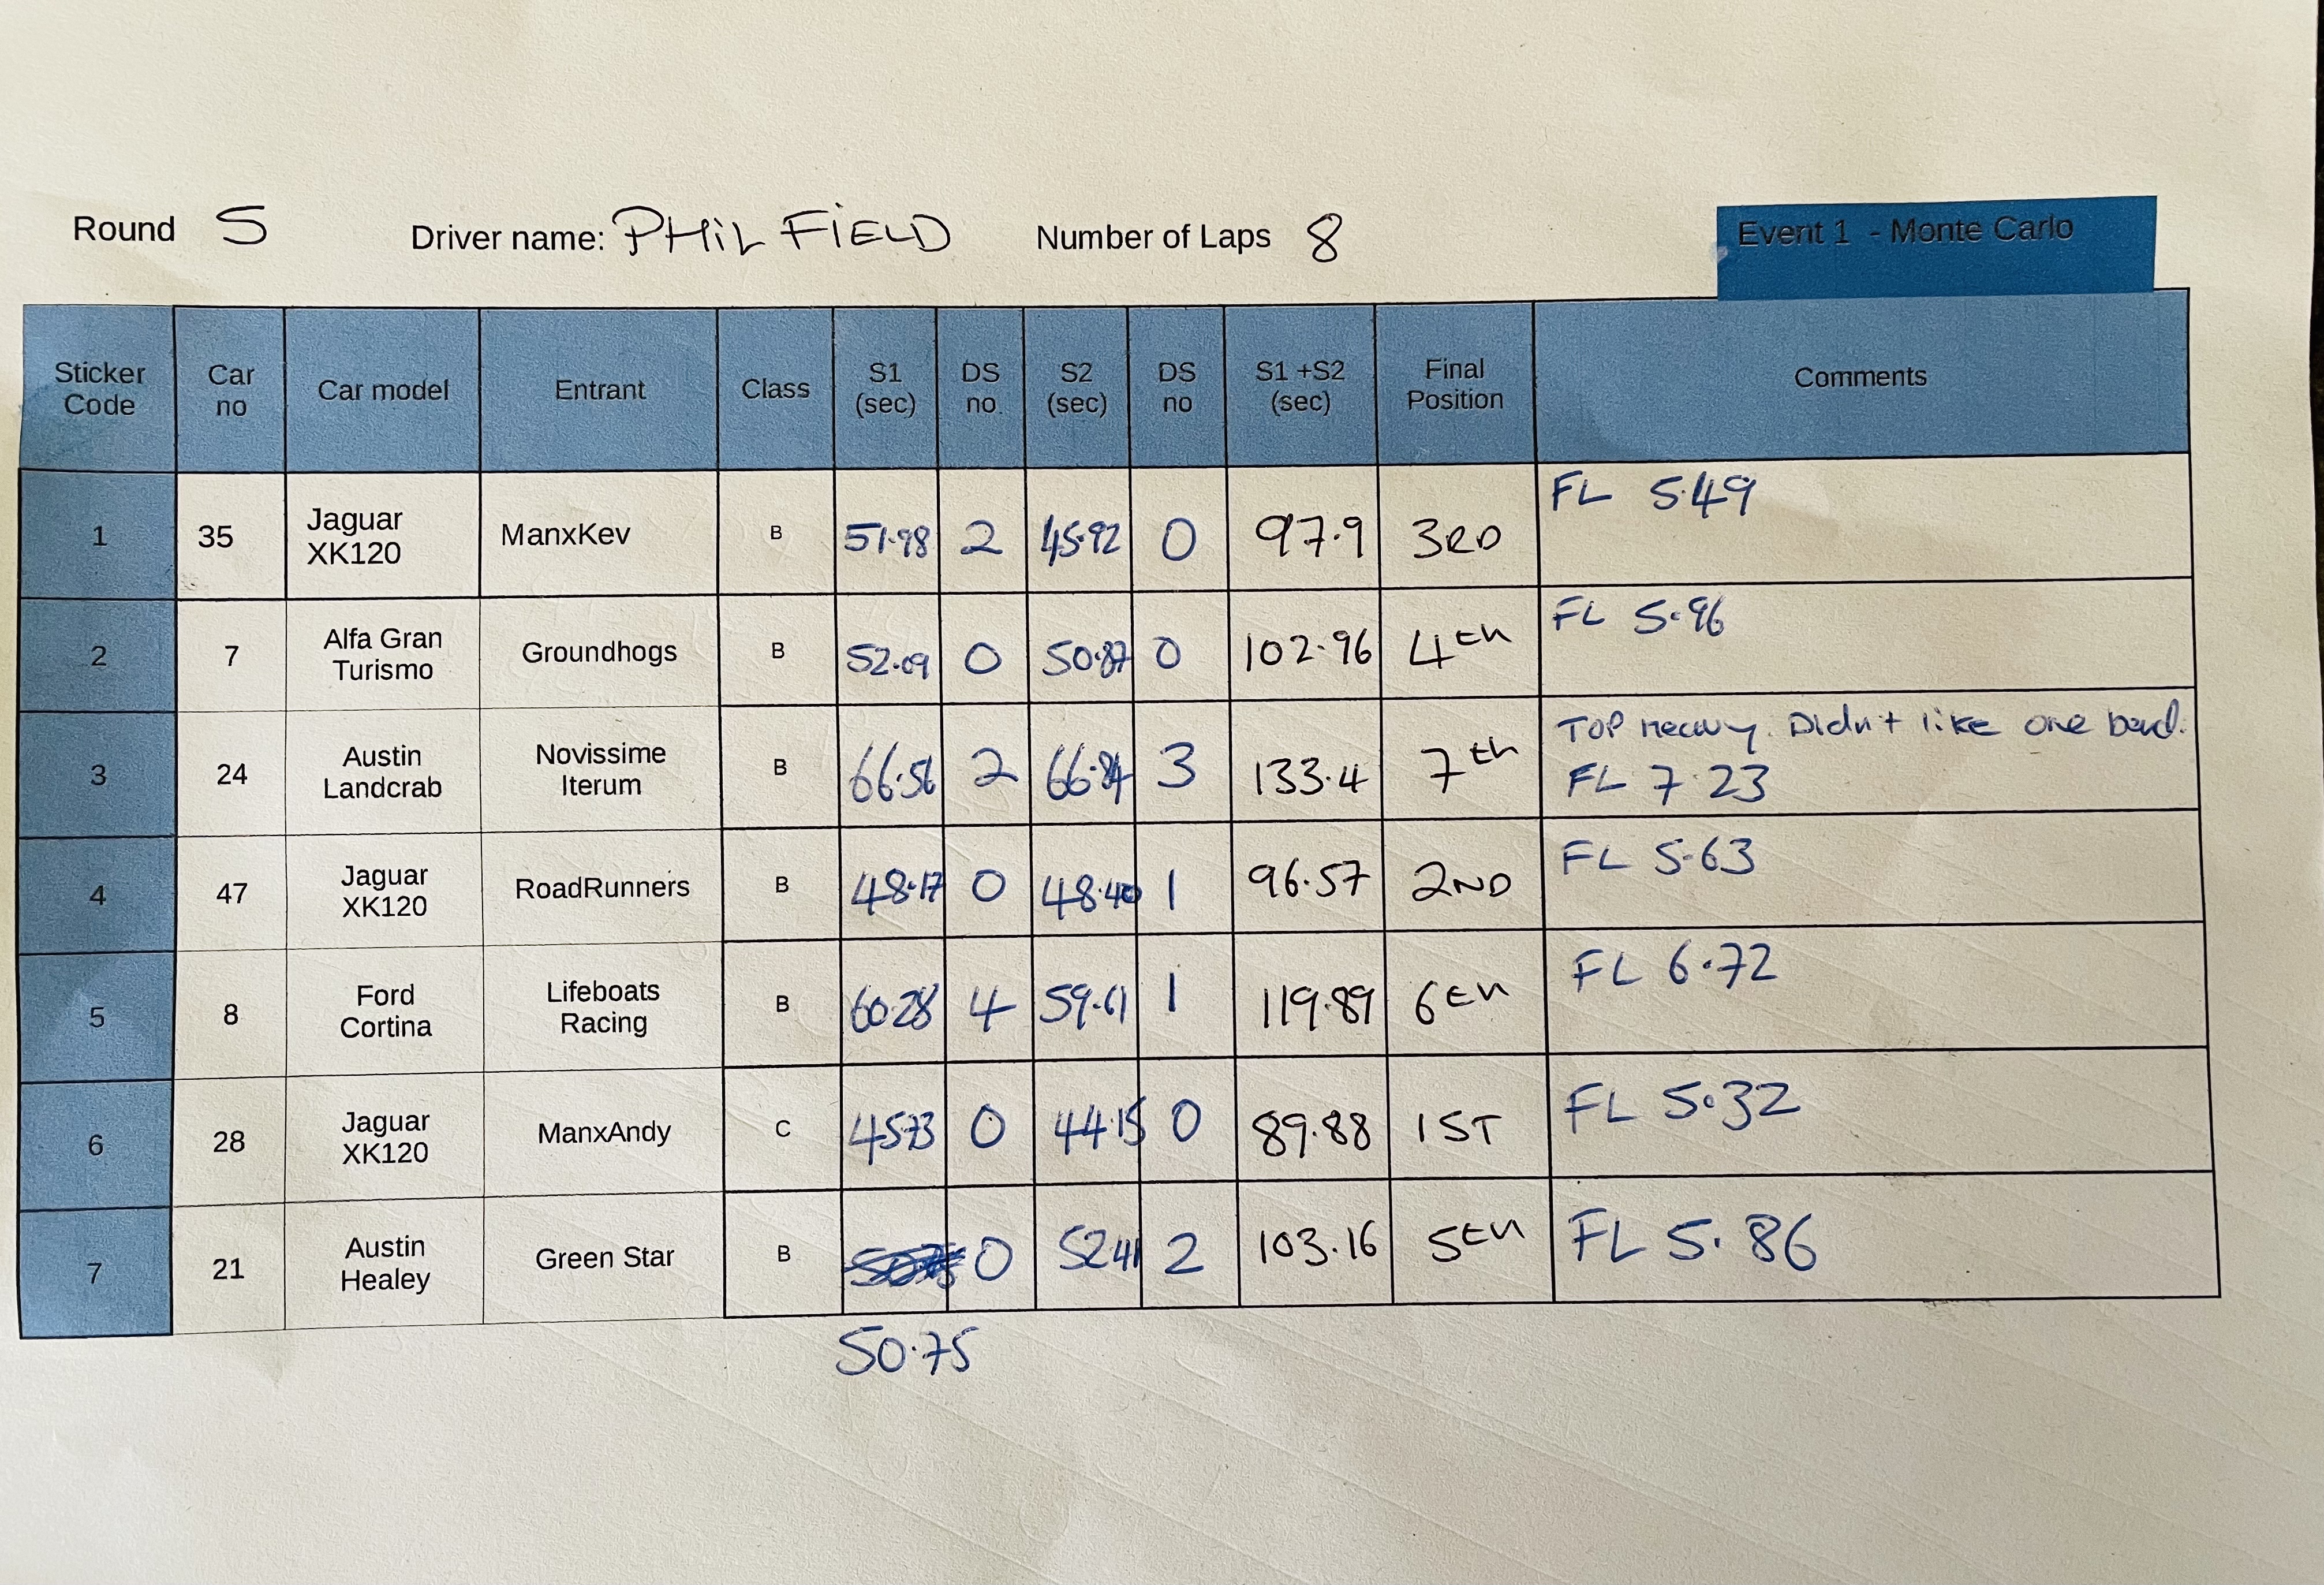 Round 5 Driver name: PHIL FIELD Number of Laps 8
Event 1 - Monte Carlo
Sticker Code Car no Car model Entrant Class S1 (sec) DS no. S2 (sec) DS no S1 +S2 (sec) Final Position Comments
1 35 Jaguar XK120 ManxKev B 51.98 2 45.92 0 97.9 3RD FL 5.49
2 7 Alfa Gran Turismo Groundhogs B 52.09 0 50.87 0 102.96 4th FL 5.96
3 24 Austin Landcrab Novissime Iterum B 66.56 2 66.84 3 133.4 7th Top heavy. Didn't like one bend.
FL 7.23
4 47 Jaguar XK120 RoadRunners B 48.17 0 48.40 1 96.57 2ND FL 5.63
5 8 Ford Cortina Lifeboats Racing B 60.28 4 59.61 1 119.89 6th FL 6.72
6 28 Jaguar XK120 ManxAndy C 45.73 0 44.15 0 89.88 1ST FL 5.32
7 21 Austin Healey Green Star B 0 52.41 2 103.16 5th FL 5.86
50.75